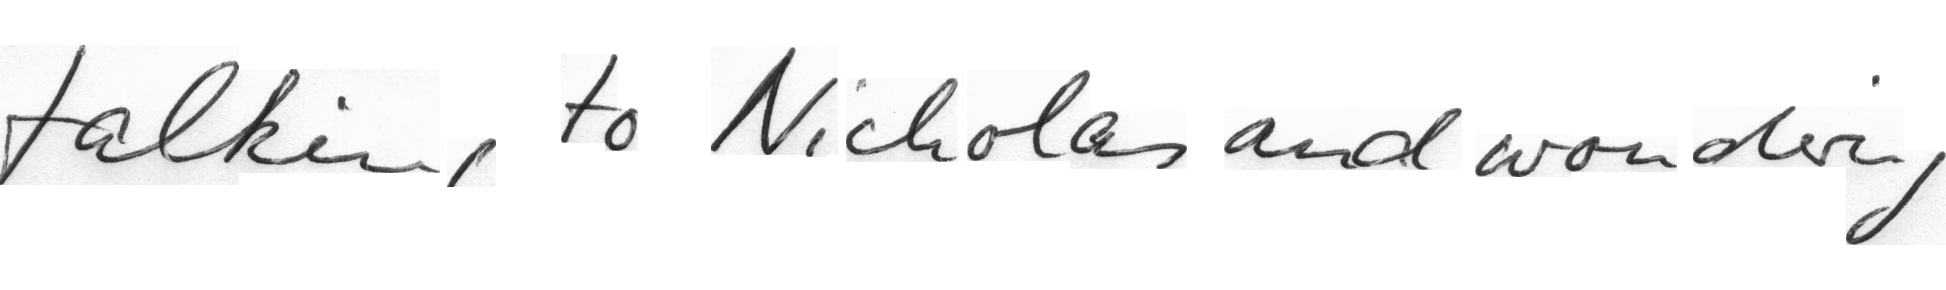 talking to Nicholas and wondering